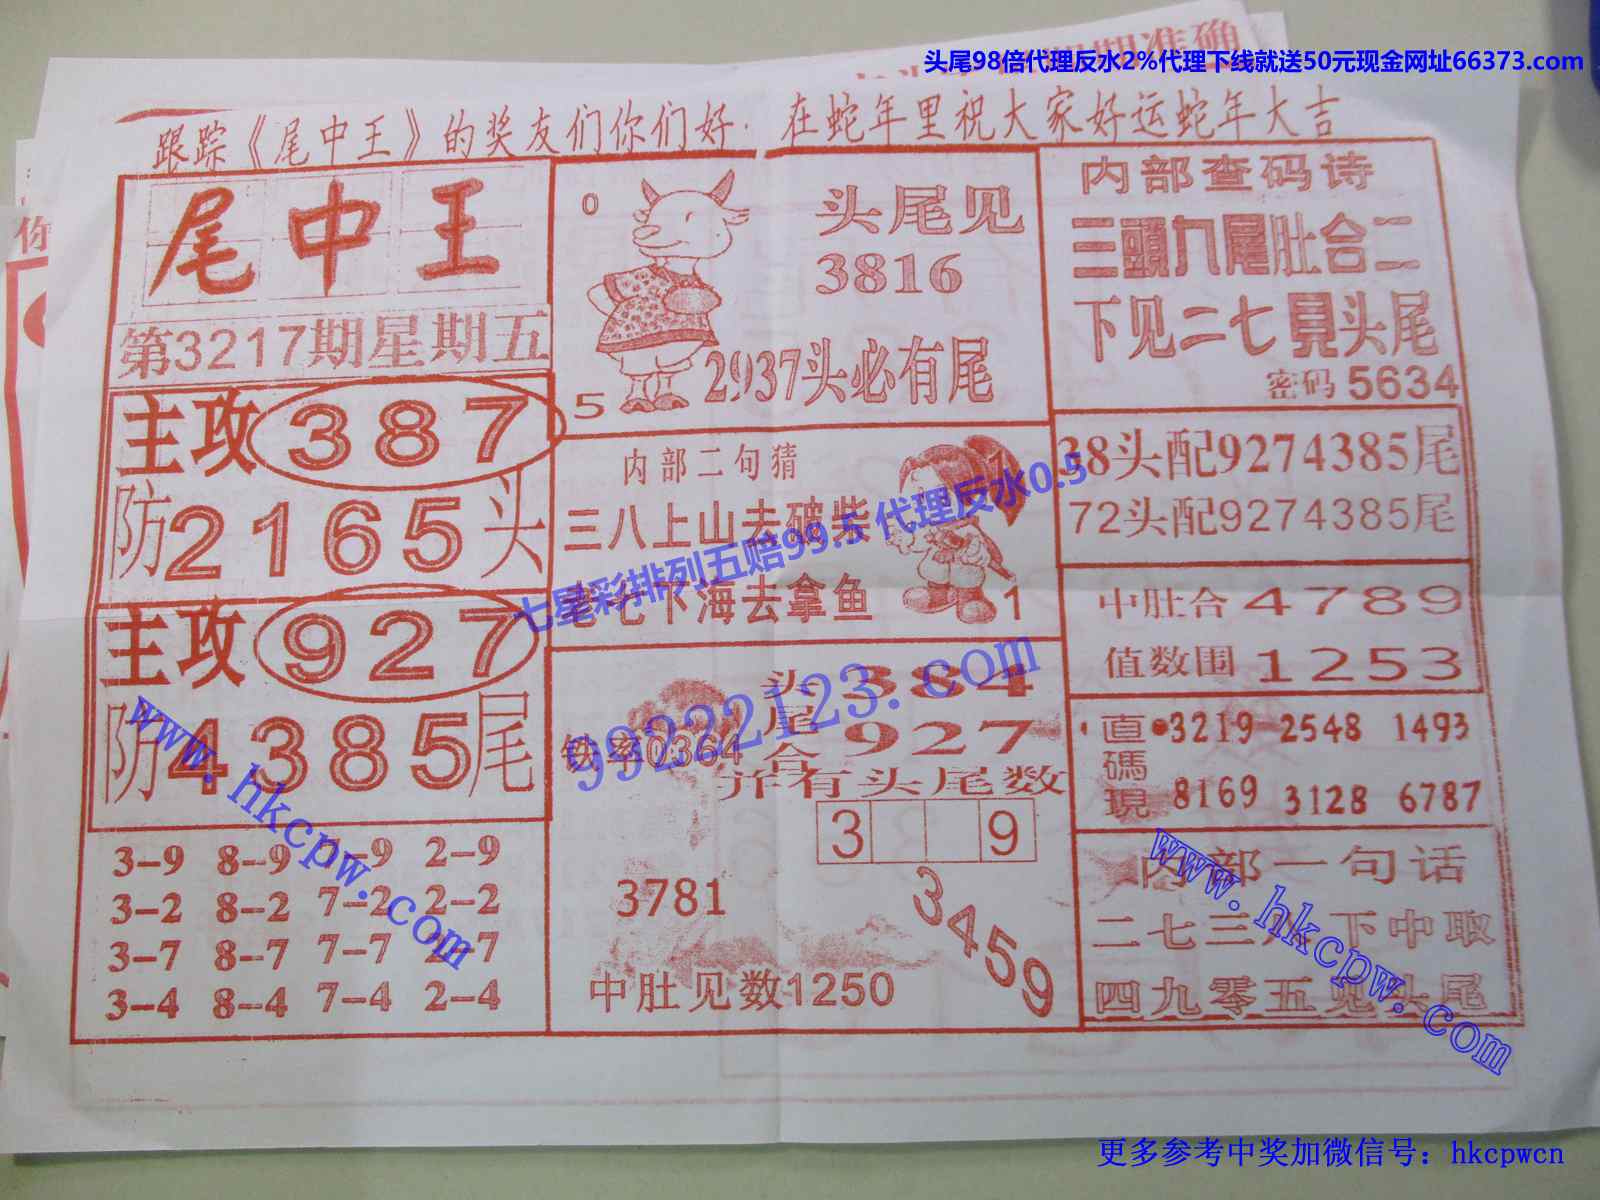 头尾98倍代理反水2%代理下线就送50元现金网址66373.com
期准确
跟踪《尾中王》的奖友们你们好.在蛇年里祝大家好运蛇年大吉
你
尾中王
第3217期星期五
主攻387
防2165头
主攻927
防4385尾
3--9 8--9 7--9 2--9
3--2 8--2 7--2 2--2
3--7 8--7 7--7 2--7
3--4 8--4 7--4 2--4
0
头尾见
3816
2937头必有尾
5
内部二句猜
三八上山去破柴
七下海去拿鱼
1
1
头384
尾927
合
铁率0364
并有头尾数
3 9
3781
3459
中肚见数1250
内部查码诗
三頭九尾肚合二
下见二七見头尾
密码5634
38头配9274385尾
72头配9274385尾
中肚合4789
值数围1253
直碼現
3219 2548 1493
8169 3128 6787
内部一句话
二七三八下中取
四九零五见头尾
七星彩排列五赔99.5 代理反水0.5
99222123.com
www.hkcpw.com
www.hkcpw.com
更多参考中奖加微信号：hkcpwcn